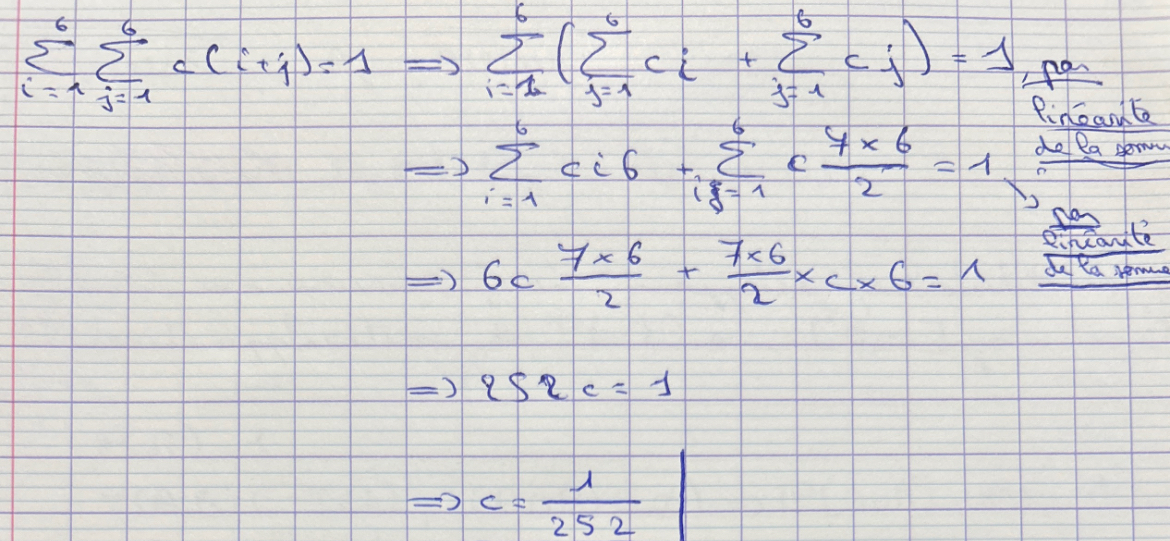 ∑_{i=1}^{6} ∑_{j=1}^{6} c(i+j)=1 ⟹ ∑_{i=1}^{6} (∑_{j=1}^{6} c i + ∑_{j=1}^{6} c j) = 1, par
linéarité
de la somme
⟹ ∑_{i=1}^{6} c i 6 + ∑_{i=1}^{6} c \frac{7×6}{2} = 1
par
linéarité
de la somme
⟹ 6c \frac{7×6}{2} + \frac{7×6}{2} × c × 6 = 1
⟹ 252c = 1
⟹ c = \frac{1}{252}